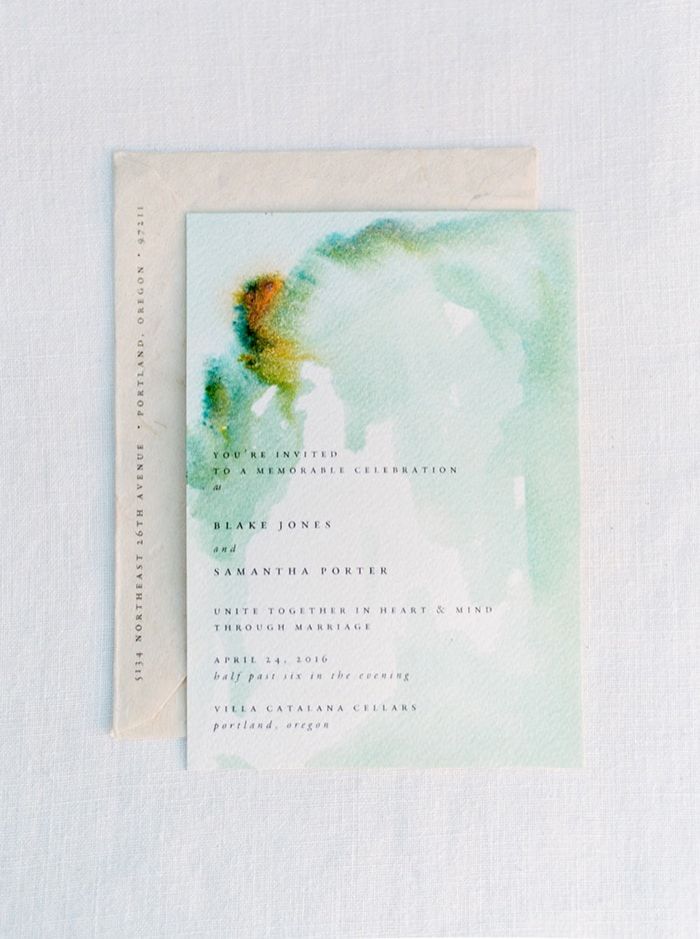 5134 NORTHEAST 26TH AVENUE • PORTLAND, OREGON • 97211
YOU'RE INVITED
TO A MEMORABLE CELEBRATION
as
BLAKE JONES
and
SAMANTHA PORTER
UNITE TOGETHER IN HEART & MIND
THROUGH MARRIAGE
APRIL 24, 2016
half past six in the evening
VILLA CATALANA CELLARS
portland, oregon